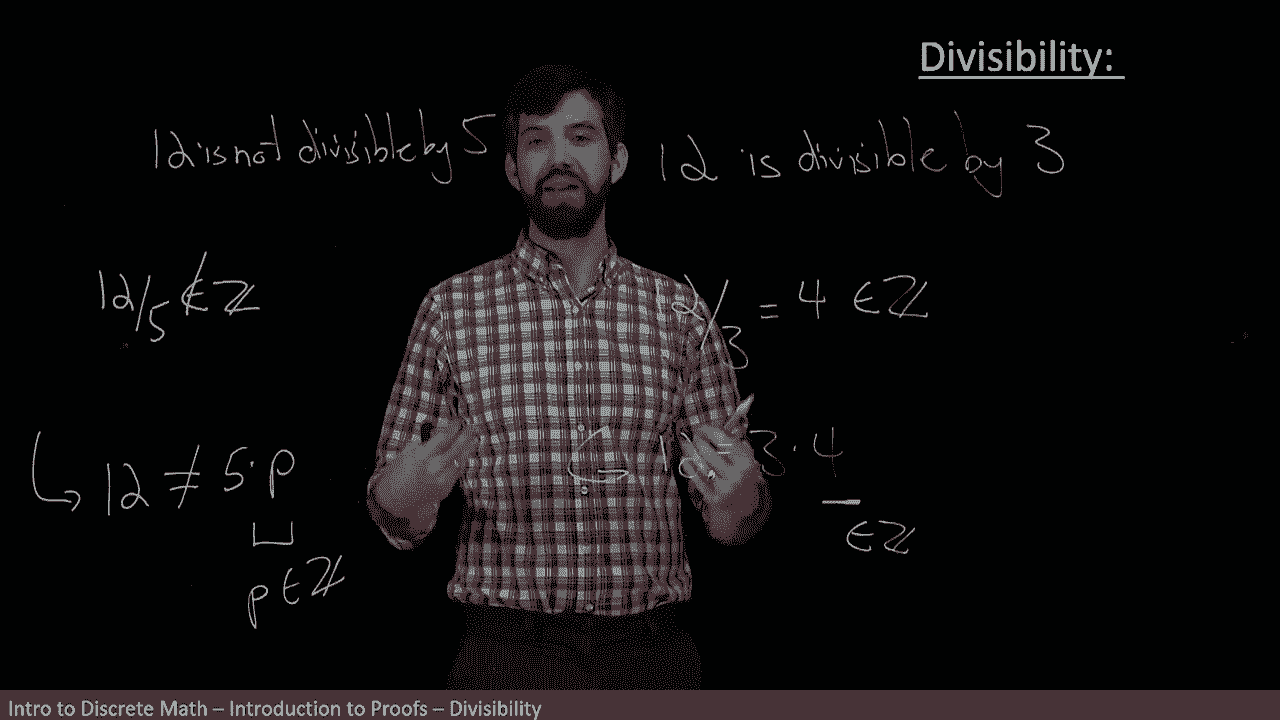 Divisibility:
12 is not divisible by 5
12 is divisible by 3
12/5 ∉ ℤ
12/3 = 4 ∈ ℤ
↳ 12 ≠ 5·p
p ∈ ℤ
↪ 12 = 3·4
∈ ℤ
Intro to Discrete Math – Introduction to Proofs – Divisibility